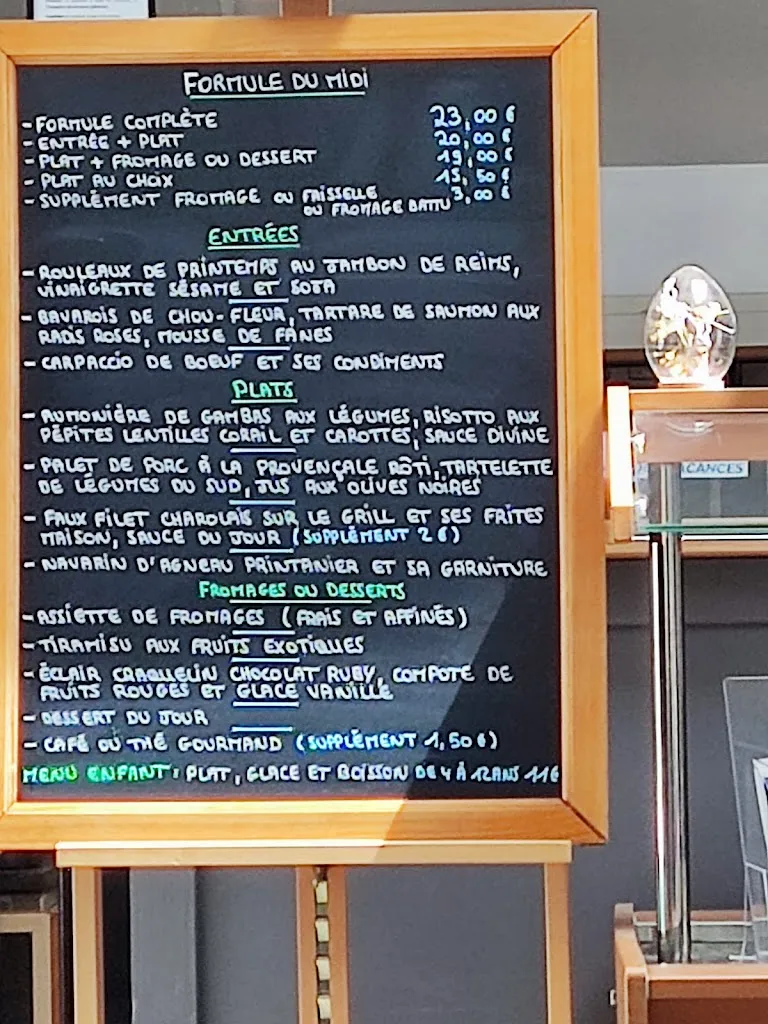 FORMULE DU MIDI
- FORMULE COMPLÈTE 23,00 €
- ENTRÉE + PLAT 20,00 €
- PLAT + FROMAGE OU DESSERT 19,00 €
- PLAT AU CHOIX 15,50 €
- SUPPLÉMENT FROMAGE OU FAISSELLE 3,00 €
OU FROMAGE BATTU
ENTRÉES
- ROULEAUX DE PRINTEMPS AU JAMBON DE REIMS,
VINAIGRETTE SÉSAME ET SOJA
- BAVAROIS DE CHOU-FLEUR, TARTARE DE SAUMON AUX
RADIS ROSES, MOUSSE DE FANES
- CARPACCIO DE BOEUF ET SES CONDIMENTS
PLATS
- AUMONIÈRE DE GAMBAS AUX LÉGUMES, RISOTTO AUX
PÉPITES LENTILLES CORAIL ET CAROTTES, SAUCE DIVINE
- PALET DE PORC À LA PROVENÇALE RÔTI, TARTELETTE
DE LÉGUMES DU SUD, JUS AUX OLIVES NOIRES
- FAUX FILET CHAROLAIS SUR LE GRILL ET SES FRITES
MAISON, SAUCE DU JOUR (SUPPLÉMENT 2 €)
- NAVARIN D'AGNEAU PRINTANIER ET SA GARNITURE
FROMAGES OU DESSERTS
- ASSIETTE DE FROMAGES (FRAIS ET AFFINÉS)
- TIRAMISU AUX FRUITS EXOTIQUES
- ÉCLAIR CRAQUELIN CHOCOLAT RUBY, COMPOTE DE
FRUITS ROUGES ET GLACE VANILLE
- DESSERT DU JOUR
- CAFÉ OU THÉ GOURMAND (SUPPLÉMENT 1,50 €)
MENU ENFANT : PLAT, GLACE ET BOISSON DE 4 À 12 ANS 11€